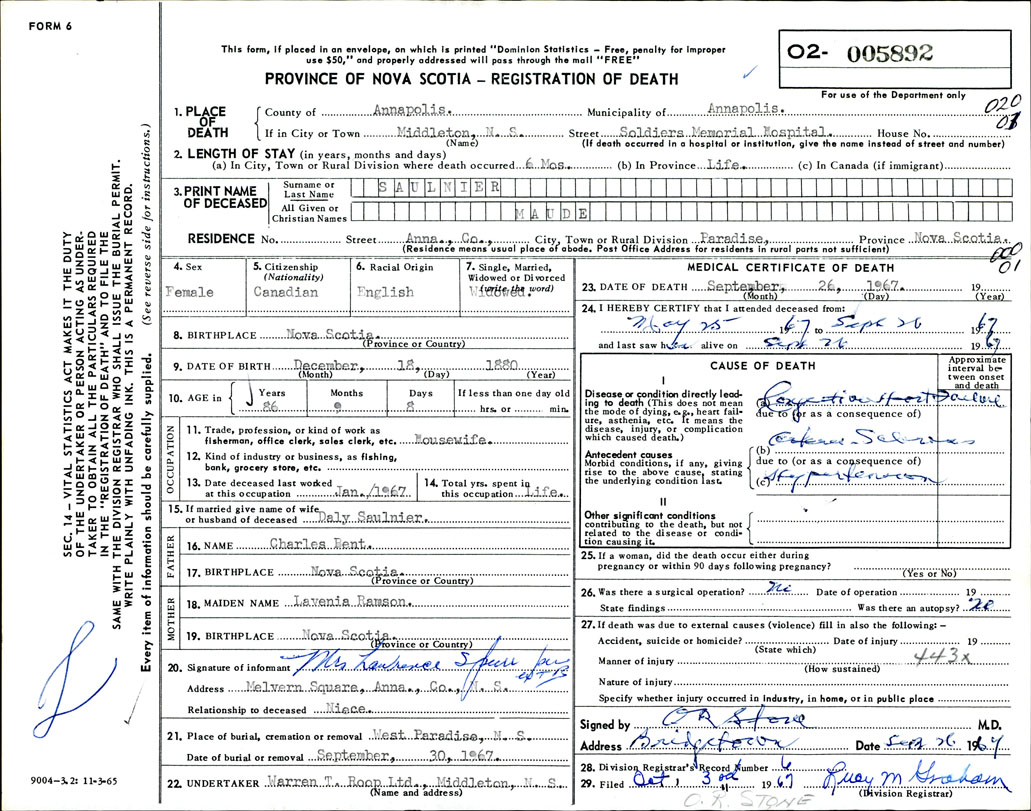 FORM 6
This form, if placed in an envelope, on which is printed "Dominion Statistics – Free, penalty for improper
use $50," and properly addressed will pass through the mail "FREE"
PROVINCE OF NOVA SCOTIA – REGISTRATION OF DEATH
02- 005892
For use of the Department only
020
03
1. PLACE OF DEATH
County of Annapolis. Municipality of Annapolis.
If in City or Town Middleton, N. S. Street Soldiers Memorial Hospital. House No.
(Name) (If death occurred in a hospital or institution, give the name instead of street and number)
2. LENGTH OF STAY (in years, months and days)
(a) In City, Town or Rural Division where death occurred 6 Mos. (b) In Province Life. (c) In Canada (if immigrant)
3. PRINT NAME OF DECEASED
Surname or Last Name SAULNIER
All Given or Christian Names MAUDE
RESIDENCE No. Street Anna., Co., City, Town or Rural Division Paradise, Province Nova Scotia.
(Residence means usual place of abode. Post Office Address for residents in rural parts not sufficient)
000
01
4. Sex
Female
5. Citizenship
(Nationality)
Canadian
6. Racial Origin
English
7. Single, Married,
Widowed or Divorced
(write the word)
Widowed.
8. BIRTHPLACE Nova Scotia.
(Province or Country)
9. DATE OF BIRTH December, 18, 1880
(Month) (Day) (Year)
10. AGE in Years Months Days If less than one day old
86 9 8 hrs. or min.
OCCUPATION
11. Trade, profession, or kind of work as
fisherman, office clerk, sales clerk, etc. Housewife.
12. Kind of industry or business, as fishing,
bank, grocery store, etc.
13. Date deceased last worked
at this occupation Jan./1967
14. Total yrs. spent in
this occupation Life.
15. If married give name of wife
or husband of deceased Daly Saulnier.
FATHER
16. NAME Charles Bent.
17. BIRTHPLACE Nova Scotia.
(Province or Country)
MOTHER
18. MAIDEN NAME Lavenia Ramson.
19. BIRTHPLACE Nova Scotia.
(Province or Country)
20. Signature of informant Mrs Lawrence Spurr per
Address Melvern Square, Anna., Co., N. S.
Relationship to deceased Niece.
21. Place of burial, cremation or removal West Paradise, N. S.
Date of burial or removal September, 30, 1967.
22. UNDERTAKER Warren T. Roop Ltd., Middleton, N. S.
(Name and address)
MEDICAL CERTIFICATE OF DEATH
23. DATE OF DEATH September, 26, 1967. 19
(Month) (Day) (Year)
24. I HEREBY CERTIFY that I attended deceased from:
May 25 1967 to Sept 26 1967
and last saw her alive on Sept 26 1967
CAUSE OF DEATH
Approximate
interval be-
tween onset
and death
I
Disease or condition directly lead-
ing to death (This does not mean
the mode of dying, e.g., heart fail-
ure, asthenia, etc. It means the
disease, injury, or complication
which caused death.)
(a) Congestive Heart Failure
due to (or as a consequence of)
Antecedent causes
Morbid conditions, if any, giving
rise to the above cause, stating
the underlying condition last.
(b)
due to (or as a consequence of)
(c) Hypertension
II
Other significant conditions
contributing to the death, but not
related to the disease or condi-
tion causing it.
25. If a woman, did the death occur either during
pregnancy or within 90 days following pregnancy?
(Yes or No)
26. Was there a surgical operation? No Date of operation 19
State findings Was there an autopsy? No
27. If death was due to external causes (violence) fill in also the following: –
Accident, suicide or homicide? Date of injury 19
(State which)
Manner of injury 443x
(How sustained)
Nature of injury
Specify whether injury occurred in industry, in home, or in public place
Signed by O R Stone M.D.
Address Bridgetown Date Sept 26 1967
28. Division Registrar's Record Number 6
29. Filed Oct 3rd 1967 Lucy M Graham
(Division Registrar)
O. R. STONE
SEC. 14 – VITAL STATISTICS ACT MAKES IT THE DUTY
OF THE UNDERTAKER OR PERSON ACTING AS UNDER-
TAKER TO OBTAIN ALL THE PARTICULARS REQUIRED
IN THE "REGISTRATION OF DEATH" AND TO FILE THE
SAME WITH THE DIVISION REGISTRAR WHO SHALL ISSUE THE BURIAL PERMIT.
WRITE PLAINLY WITH UNFADING INK. THIS IS A PERMANENT RECORD.
Every item of information should be carefully supplied. (See reverse side for instructions.)
9004-3.2: 11-3-65